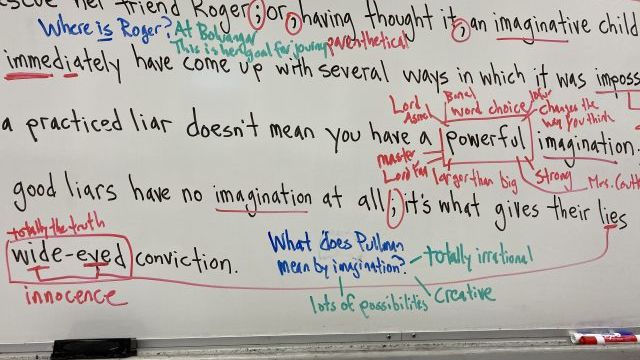 scue her friend Roger; or, having thought it, an imaginative child
Where is Roger? At Bolvangar parenthetical
This is her goal for journey
immediately have come up with several ways in which it was imposs
Lord Asriel word choice changes the way you think
a practiced liar doesn't mean you have a powerful imagination.
master larger than big strong Mrs.
good liars have no imagination at all; it's what gives their lies
totally the truth
wide-eyed conviction. What does Pullman mean by imagination? totally irrational
innocence lots of possibilities creative